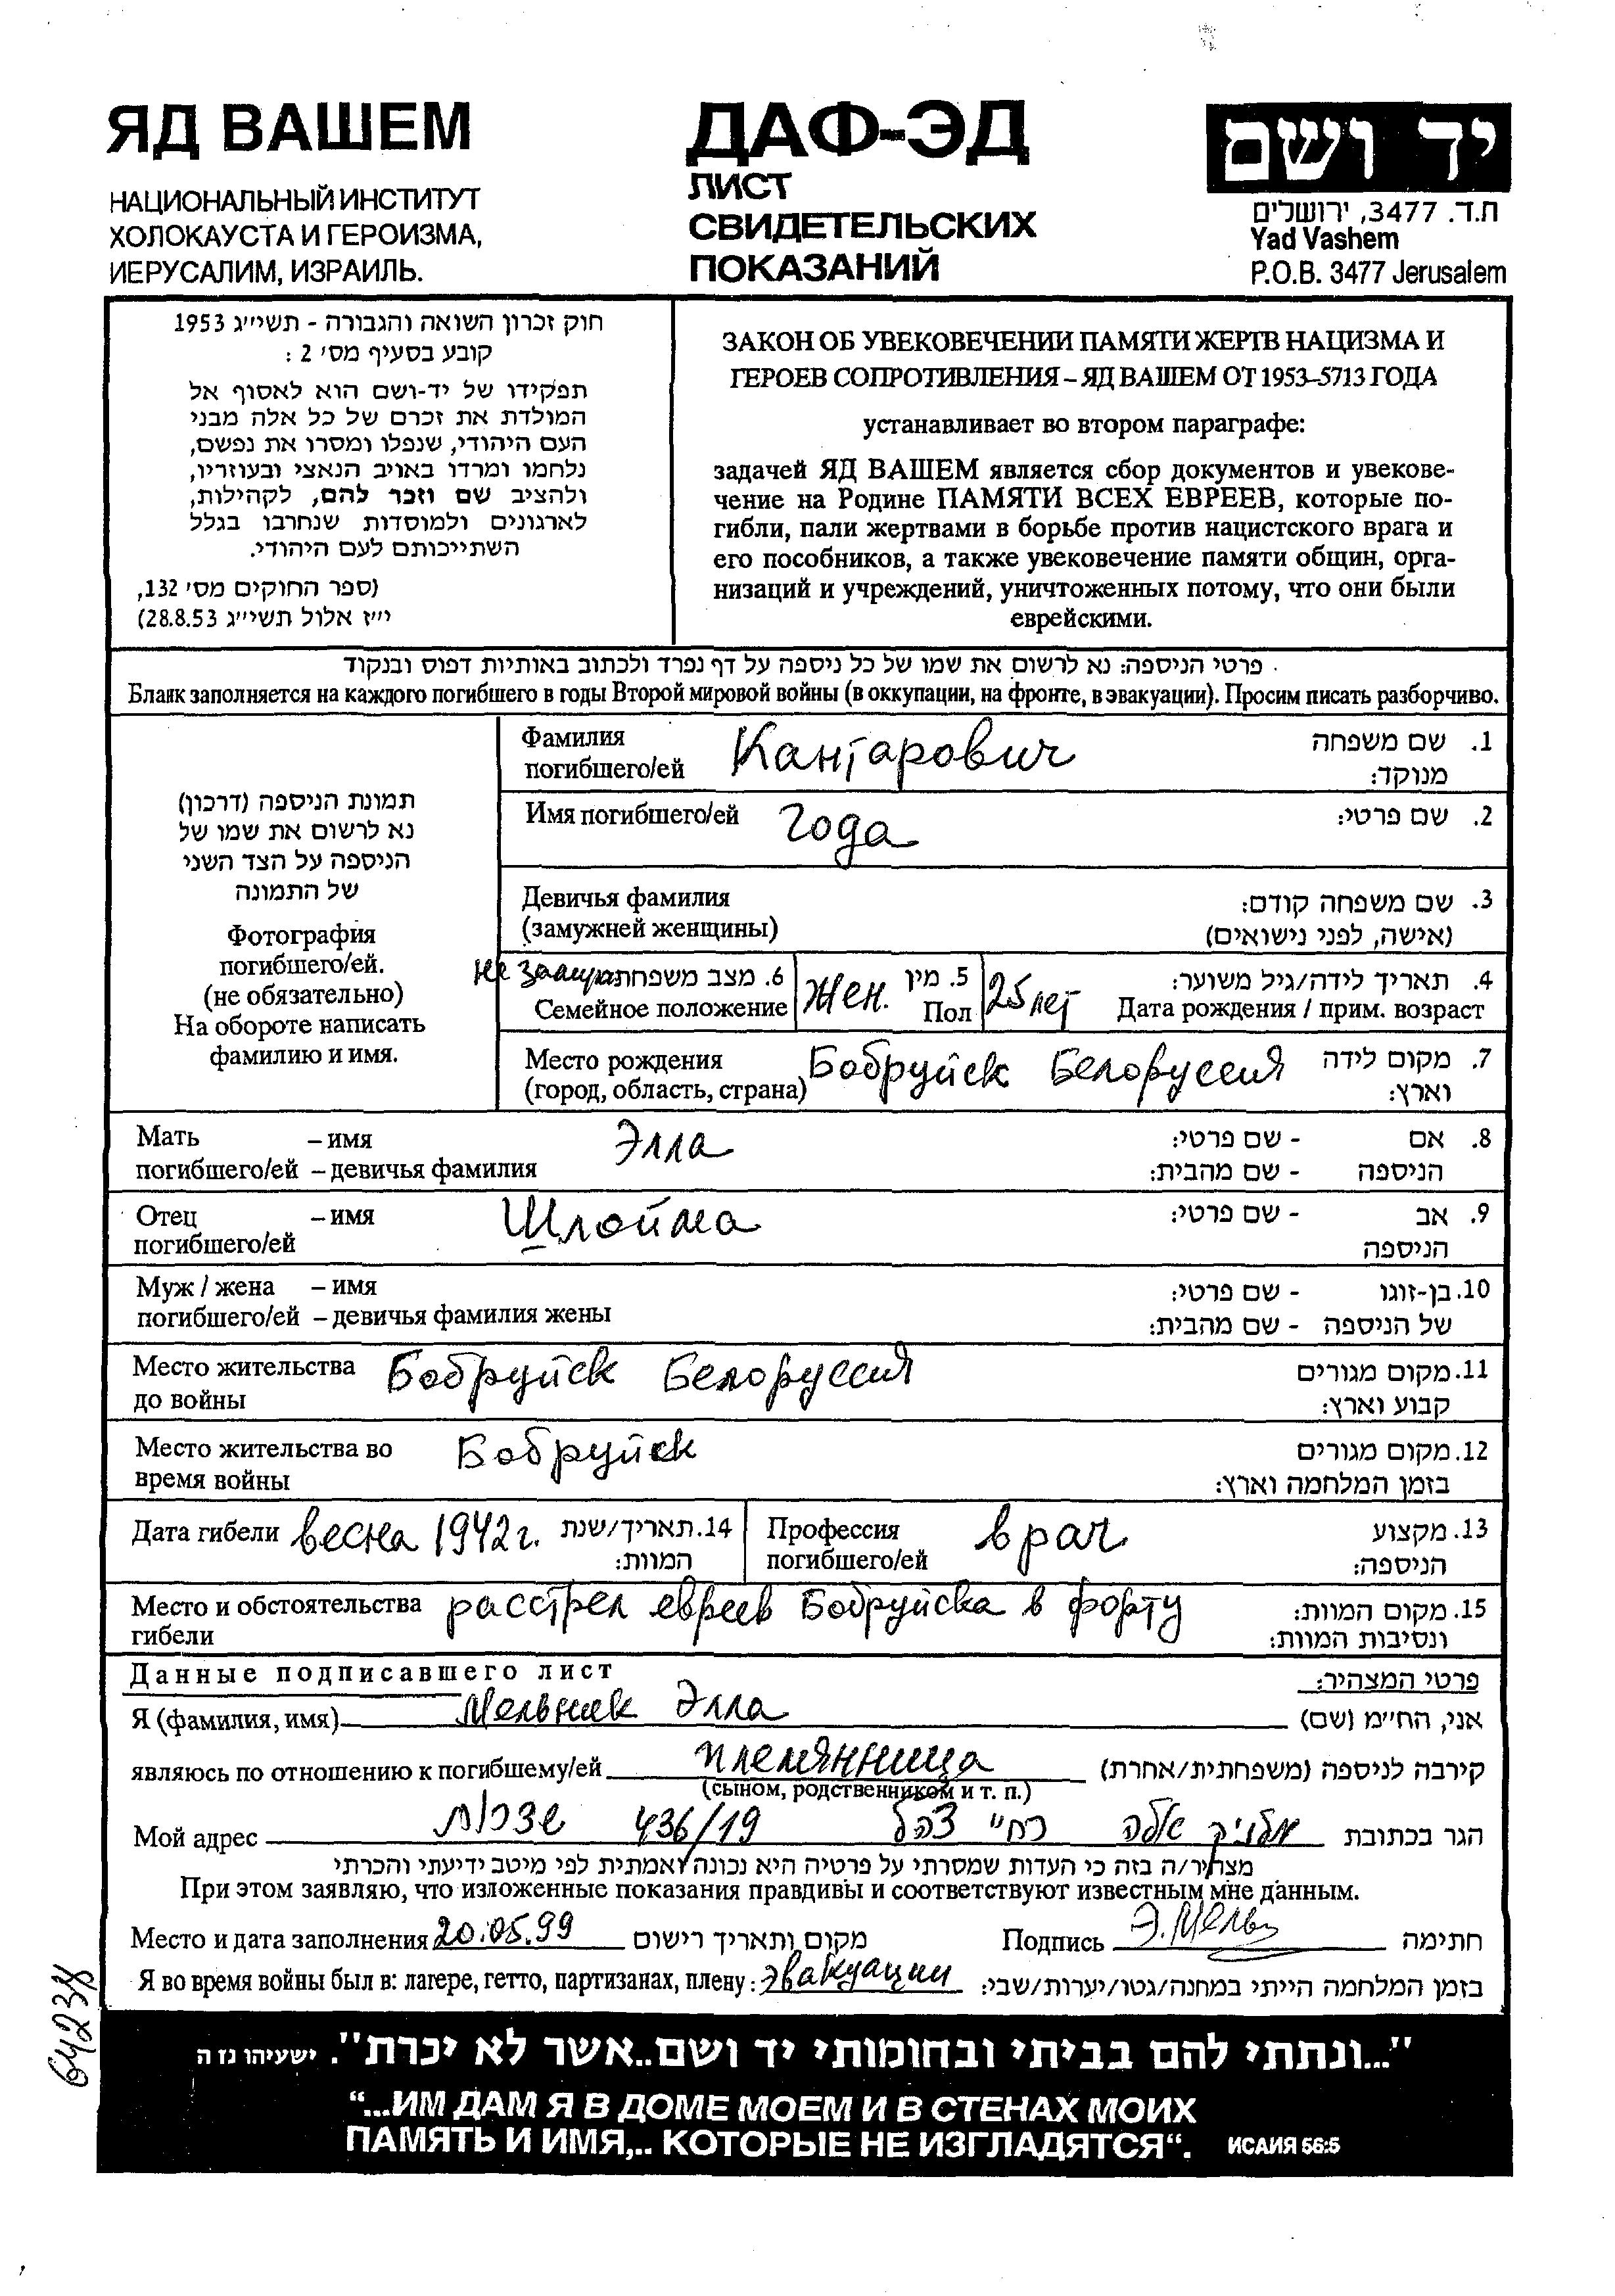 ЯД ВАШЕМ
НАЦИОНАЛЬНЫЙ ИНСТИТУТ
ХОЛОКАУСТА И ГЕРОИЗМА,
ИЕРУСАЛИМ, ИЗРАИЛЬ.
ДАФ-ЭД
ЛИСТ
СВИДЕТЕЛЬСКИХ
ПОКАЗАНИЙ
יד ושם
ת.ד. 3477, ירושלים
Yad Vashem
P.O.B. 3477 Jerusalem
חוק זכרון השואה והגבורה - תשי״ג 1953
קובע בסעיף מס׳ 2 :
תפקידו של יד-ושם הוא לאסוף אל
המולדת את זכרם של כל אלה מבני
העם היהודי, שנפלו ומסרו את נפשם,
נלחמו ומרדו באויב הנאצי ובעוזריו,
ולהציב שם וזכר להם, לקהילות,
לארגונים ולמוסדות שנחרבו בגלל
השתייכותם לעם היהודי.
(ספר החוקים מס׳ 132,
י״ז אלול תשי״ג 28.8.53)
ЗАКОН ОБ УВЕКОВЕЧЕНИИ ПАМЯТИ ЖЕРТВ НАЦИЗМА И
ГЕРОЕВ СОПРОТИВЛЕНИЯ – ЯД ВАШЕМ ОТ 1953–5713 ГОДА
устанавливает во втором параграфе:
задачей ЯД ВАШЕМ является сбор документов и увекове-
чение на Родине ПАМЯТИ ВСЕХ ЕВРЕЕВ, которые по-
гибли, пали жертвами в борьбе против нацистского врага и
его пособников, а также увековечение памяти общин, орга-
низаций и учреждений, уничтоженных потому, что они были
еврейскими.
פרטי הניספה: נא לרשום את שמו של כל ניספה על דף נפרד ולכתוב באותיות דפוס ובנקוד
Бланк заполняется на каждого погибшего в годы Второй мировой войны (в оккупации, на фронте, в эвакуации). Просим писать разборчиво.
תמונת הניספה (דרכון)
נא לרשום את שמו של
הניספה על הצד השני
של התמונה
Фотография
погибшего/ей.
(не обязательно)
На обороте написать
фамилию и имя.
Фамилия Кантарович 1. שם משפחה
погибшего/ей מנוקד:
Имя погибшего/ей Года 2. שם פרטי:
Девичья фамилия 3. שם משפחה קודם:
(замужней женщины) (אישה, לפני נישואים)
не 6. מצב משפחתי 5. מין 4. תאריך לידה/גיל משוער:
Семейное положение жен. Пол 25 лет Дата рождения / прим. возраст
Место рождения Бобруйск Белоруссия 7. מקום לידה
(город, область, страна) וארץ:
Мать – имя Элла - שם פרטי: 8. אם
погибшего/ей – девичья фамилия - שם מהבית: הניספה
Отец – имя Шлойма - שם פרטי: 9. אב
погибшего/ей הניספה
Муж / жена – имя - שם פרטי: 10. בן-זוגו
погибшего/ей – девичья фамилия жены - שם מהבית: של הניספה
Место жительства Бобруйск Белоруссия 11. מקום מגורים
до войны קבוע וארץ:
Место жительства во Бобруйск 12. מקום מגורים
время войны בזמן המלחמה וארץ:
Дата гибели весна 1942 г. 14. תאריך/שנת Профессия врач 13. מקצוע
המוות: погибшего/ей הניספה:
Место и обстоятельства расстрел евреев Бобруйска в форту 15. מקום המוות:
гибели ונסיבות המוות:
Данные подписавшего лист פרטי המצהיר:
Я (фамилия, имя) Мельник Элла אני, הח״מ (שם)
являюсь по отношению к погибшему/ей племянница קירבה לניספה (משפחתית/אחרת)
(сыном, родственником и т. п.)
Мой адрес שדרות 436/19 רח״ צהל מלניק אלה הגר בכתובת
מצהיר/ה בזה כי העדות שמסרתי על פרטיה היא נכונה ואמתית לפי מיטב ידיעתי והכרתי
При этом заявляю, что изложенные показания правдивы и соответствуют известным мне данным.
Место и дата заполнения 20.05.99 מקום ותאריך רישום Подпись Э. Мельн חתימה
Я во время войны был в: лагере, гетто, партизанах, плену: эвакуации בזמן המלחמה הייתי במחנה/גטו/יערות/שבי:
"...ונתתי להם בביתי ובחומותי יד ושם..אשר לא יכרת". ישעיהו נז ה
“...ИМ ДАМ Я В ДОМЕ МОЕМ И В СТЕНАХ МОИХ
ПАМЯТЬ И ИМЯ,.. КОТОРЫЕ НЕ ИЗГЛАДЯТСЯ“. ИСАИЯ 56:5